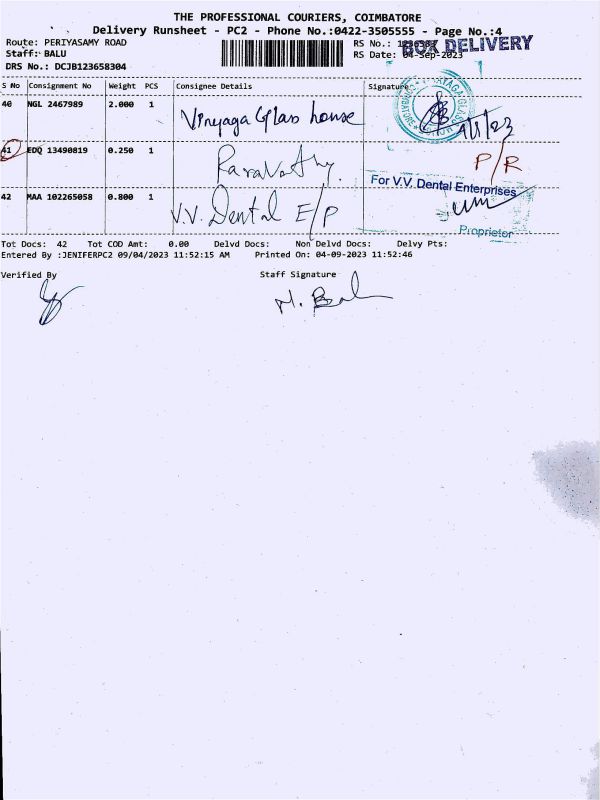 THE PROFESSIONAL COURIERS, COIMBATORE
Delivery Runsheet - PC2 - Phone No.:0422-3505555 - Page No.:4
Route: PERIYASAMY ROAD
RS No.:
BOX DELIVERY
Staff: BALU
RS Date: 04-Sep-2023
DRS No.: DCJB123658304
S No Consignment No Weight PCS Consignee Details Signature
40 NGL 2467989 2.000 1 Vinyaga Glass house
41 EDQ 13490819 0.250 1
P/R
For V.V. Dental Enterprises
42 MAA 102265058 0.800 1 V.V. Dental E/P
Proprietor
Tot Docs: 42 Tot COD Amt: 0.00 Delvd Docs: Non Delvd Docs: Delvy Pts:
Entered By :JENIFERPC2 09/04/2023 11:52:15 AM Printed On: 04-09-2023 11:52:46
Verified By Staff Signature